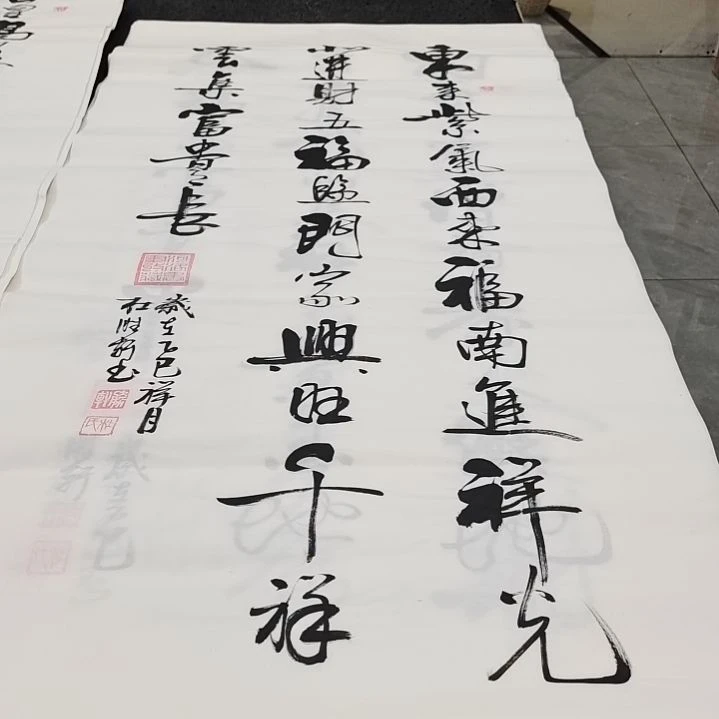 東来紫氣西来福南進祥光
北進財五福臨門家興旺千祥
雲集富貴長
歲在乙巳祥月